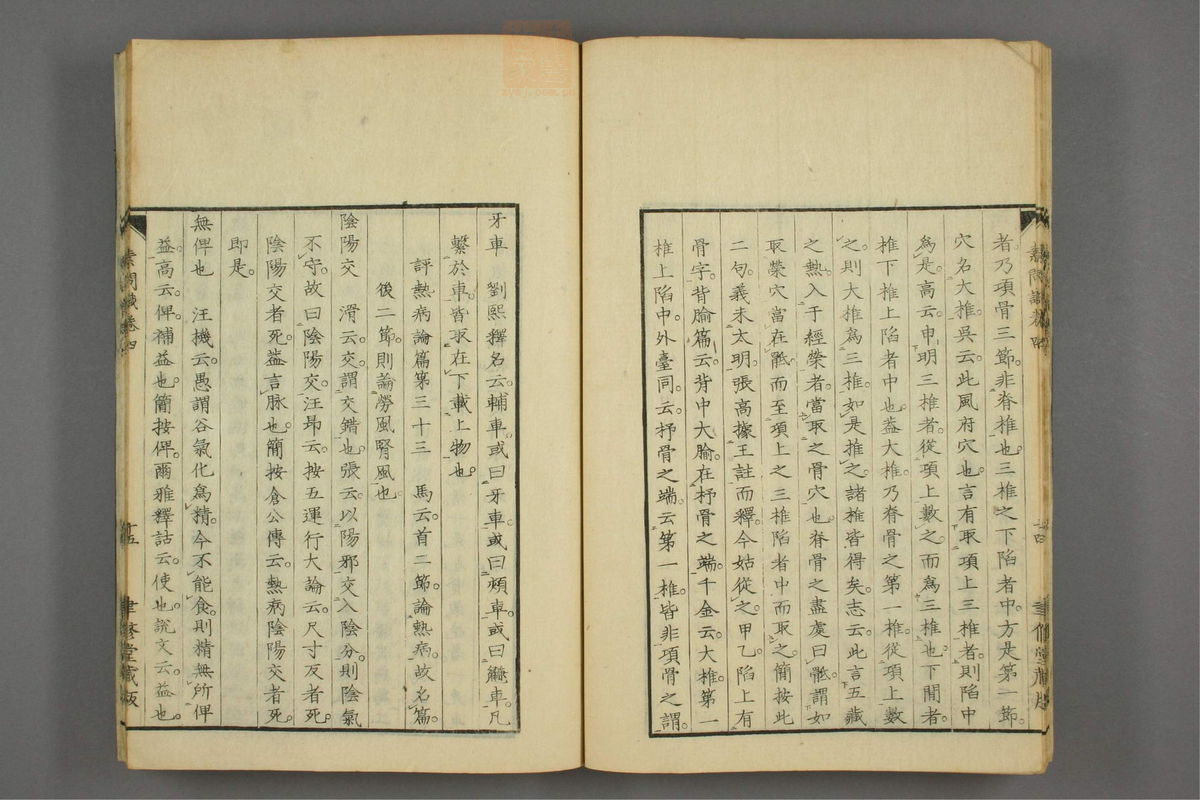 者乃項骨三節非脊椎也三椎之下陷者中方是第一節
穴名大椎吳云此風府穴也言有取項上三椎者則陷中
爲是高云申明三椎者從項上數之而爲三椎也下閒者
椎下椎上陷者中也蓋大椎乃脊骨之第一椎從項上數
之則大椎爲三椎如是推之諸椎皆得矣志云此言五藏
之熱入于經榮者當取之骨穴也脊骨之盡處曰骶謂如
取榮穴當在骶而至項上之三椎陷者中而取之簡按此
二句義未太明張高據王註而釋今姑從之甲乙陷上有
骨字背腧篇云背中大腧在杼骨之端千金云大椎第一
椎上陷中外臺同云杼骨之端云第一椎皆非項骨之謂
素問識卷四
聿修堂藏版
牙車 劉熙釋名云輔車或曰牙車或曰頰車或曰䶎車凡
繫於車皆取在下載上物也
評熱病論篇第三十三 馬云首二節論熱病故名篇
後二節則論勞風腎風也
陰陽交 滑云交謂交錯也張云以陽邪交入陰分則陰氣
不守故曰陰陽交汪昂云按五運行大論云尺寸反者死
陰陽交者死蓋言脉也簡按倉公傳云熱病陰陽交者死
即是
無俾也 汪機云愚謂谷氣化爲精今不能食則精無所俾
益高云俾補益也簡按俾爾雅釋詁云使也說文云益也
素問識卷四
十五
聿修堂藏版